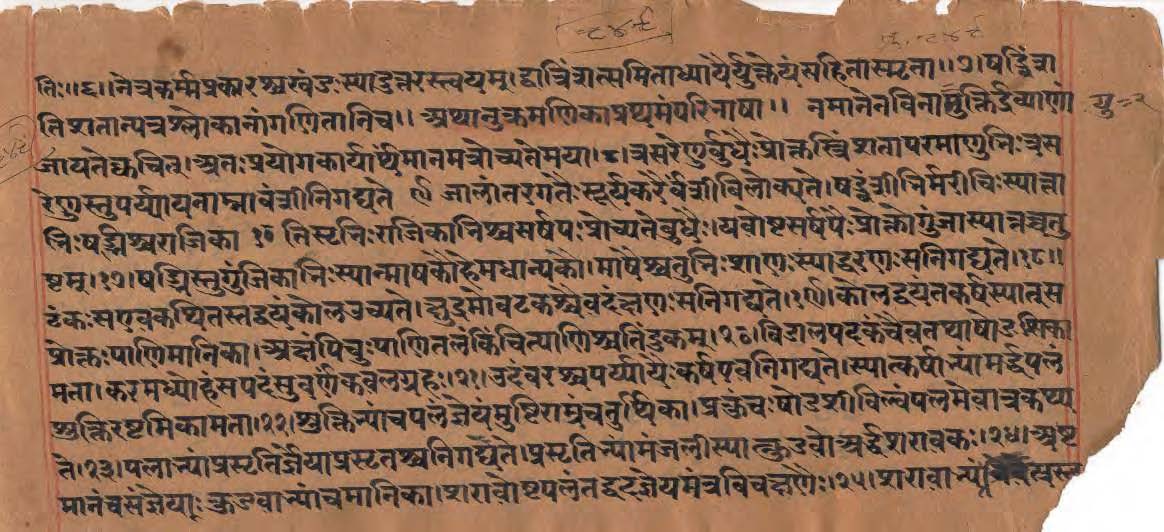 तिः॥६॥नेत्रकर्म्मप्रकारश्चखंडःस्यादुत्तरस्त्वयम्।द्वात्रिंशत्समिताध्यायैर्युक्तेयंसंहितास्मृता॥७।षड्विंश
तिशतान्यत्रश्लोकानांगणितानिच॥ अथानुक्रमणिकाप्रथमंपरिभाषा॥ नमानेनविनायुक्तिर्द्रव्याणां यु=२
जायतेक्वचित्।अतःप्रयोगकार्यार्थंमानमत्रोच्यतेमया।८।त्रसरेणुर्बुधैःप्रोक्तस्त्रिंशतापरमाणुभिःत्रस
रेणुस्तुपर्य्यायनाम्नावंशीनिगद्यते ९ जालांतरगतैःसूर्यकरैर्वंशीविलोक्यते।षड्वंशीभिर्मरीचिःस्यात्ता
भिःषड्भिश्चराजिका १० तिसृभिःराजिकाभिश्चसर्षपःप्रोच्यतेबुधैः।यवोष्टसर्षपैःप्रोक्तोगुंजास्यात्तच्चतु
ष्टम्।१७।षड्भिस्तुगुंजिकाभिःस्यान्माषकौहेमधान्यकौ।माषैश्चतुर्भिःशाणःस्याद्धरणःसनिगद्यते।१८॥
टंकःसएवकथितस्तद्वयंकोलउच्यते।क्षुद्रमोवटकश्चैवद्रंक्षणःसनिगद्यते।१९।कोलद्वयंतकर्षस्यात्स
प्रोक्तःपाणिमानिका।अक्षंपिचुःपाणितलंकिंचित्पाणिश्चतिंदुकम्।२०।बिडालपदकंचैवतथाषोडशिका
मता।करमध्योहंसपदंसुवर्णंकवलग्रहः।२१।उदंबरश्चपर्य्यायैःकर्षएवनिगद्यते।स्यात्कर्षाभ्यामर्द्धपलं
शुक्तिरष्टमिकामता।२२।शुक्तिभ्यांचपलंज्ञेयंमुष्टिराम्रंचतुर्थिका।प्रकुंचःषोडशीबिल्वंपलमेवात्रकथ्य
ते।२३।पलाभ्यांप्रसृतिर्ज्ञेयाप्रसृतश्चनिगद्यते।प्रसृतिभ्यामंजलीस्यात्कुडवोअर्द्धशरावकः।२४।अष्ट
मानंचसंज्ञेयाःकुडवाभ्यांचमानिका।शरावोष्टपलंतद्वद्ज्ञेयमंत्रविचक्षणैः।२५।शरावाभ्यां